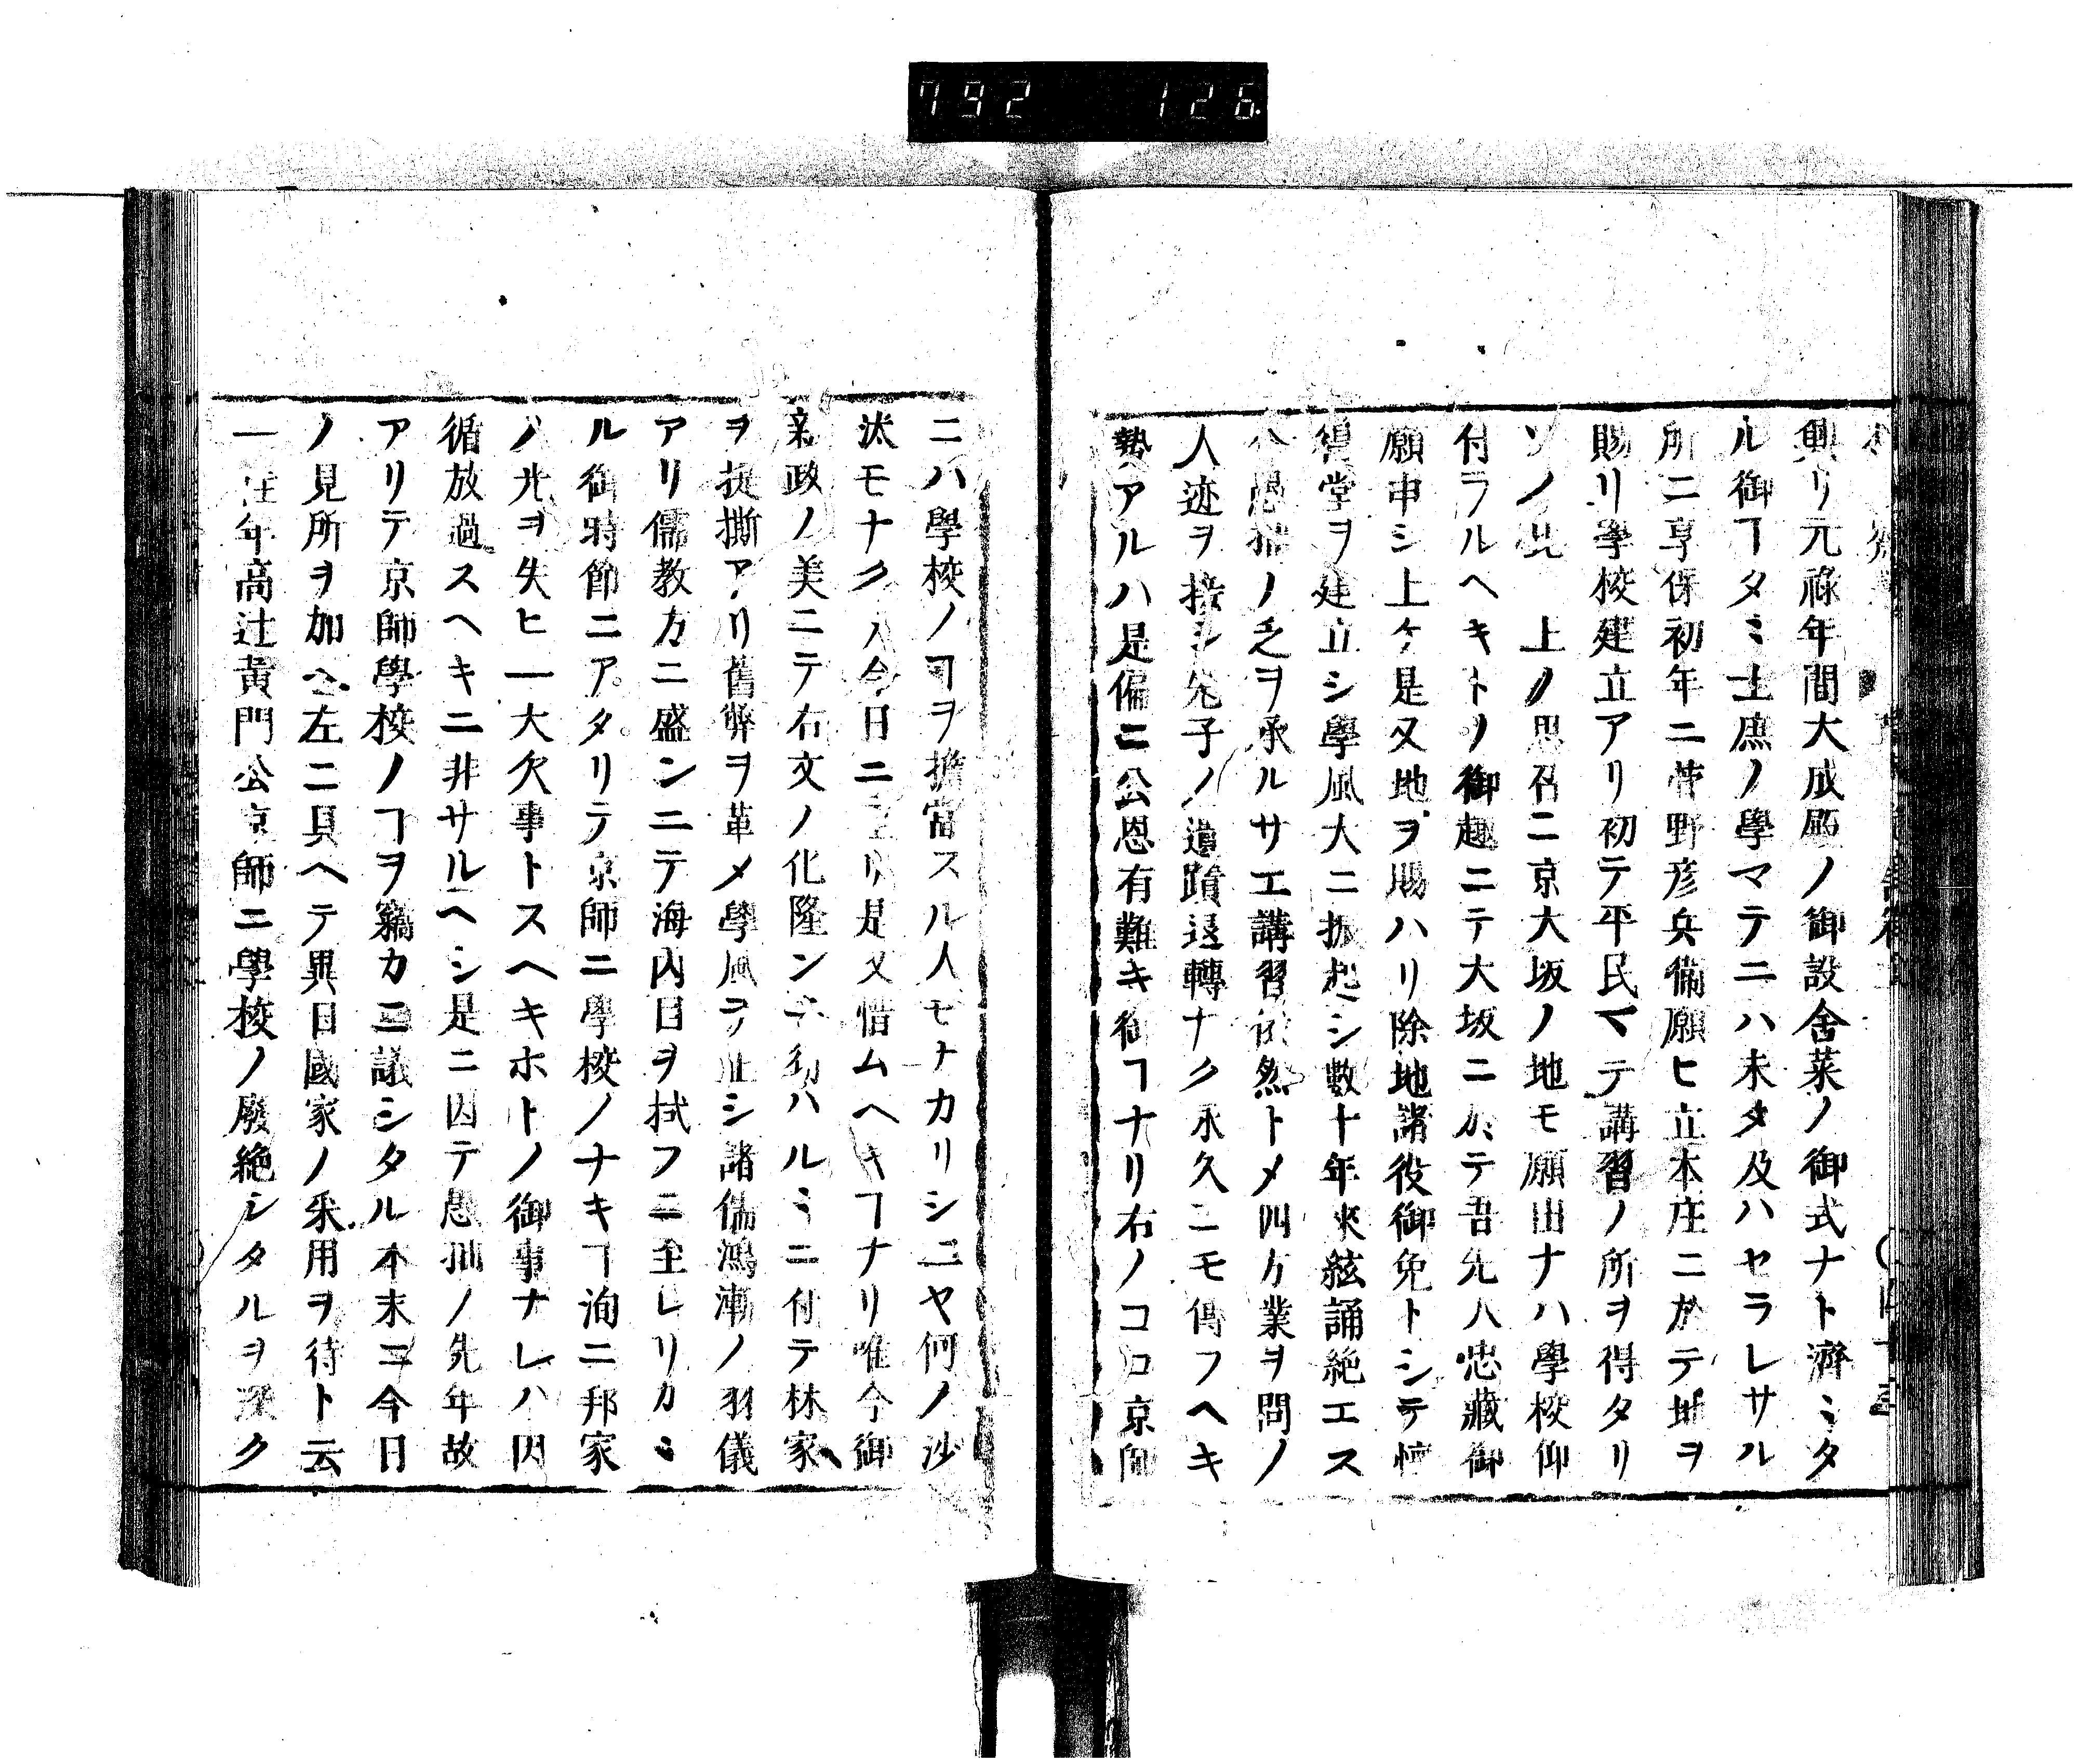 792 126
興リ元祿年間大成殿ノ御設舎菜ノ御式ナト濟ミタ
ル御ヿタミ士庶ノ學マテニハ未タ及ハセラレサル
所ニ享保初年ニ菅野彦兵衞願ヒ立本庄ニ於テ地ヲ
賜リ學校建立アリ初テ平民マテ講習ノ所ヲ得タリ
ソノ比 上ノ思召ニ京大坂ノ地モ願出ナハ學校仰
付ラルヘキトノ御趣ニテ大坂ニ於テ吾先人忠藏御
願申シ上ケ是又地ヲ賜ハリ除地諸役御免トシテ懷
德堂ヲ建立シ學風大ニ振起シ數十年來絃誦絶エス
今愚拙ノ乏ヲ承ルサエ講習依然トメ四方業ヲ問ノ
人迹ヲ接シ先子ノ遺蹟退轉ナク永久ニモ傳フヘキ
勢アルハ是偏ニ公恩有難キ御ヿナリ右ノコロ京師
ニハ學校ノヿヲ擔當スル人モナカリシニヤ何ノ沙
汰モナク今日ニ至リ是又惜ムヘキヿナリ唯今御
新政ノ美ニテ右文ノ化隆ンニ行ハルミニ付テ林家
ヲ提撕アリ舊弊ヲ革メ學風ヲ正シ諸儒鴻漸ノ羽儀
アリ儒教方ニ盛ンニテ海内目ヲ拭フニ至レリカミ
ル御時節ニアタリテ京師ニ學校ノナキヿ洵ニ邦家
ノ光ヲ失ヒ一大欠事トスヘキホトノ御事ナレハ因
循放過スヘキニ非サルヘシ是ニ因テ愚拙ノ先年故
アリテ京師學校ノヿヲ竊カニ議シタル本末ニ今日
ノ見所ヲ加ヘ左ニ具ヘテ異日國家ノ采用ヲ待ト云
一往年高辻黄門公京師ニ學校ノ廢絶シタルヲ深ク